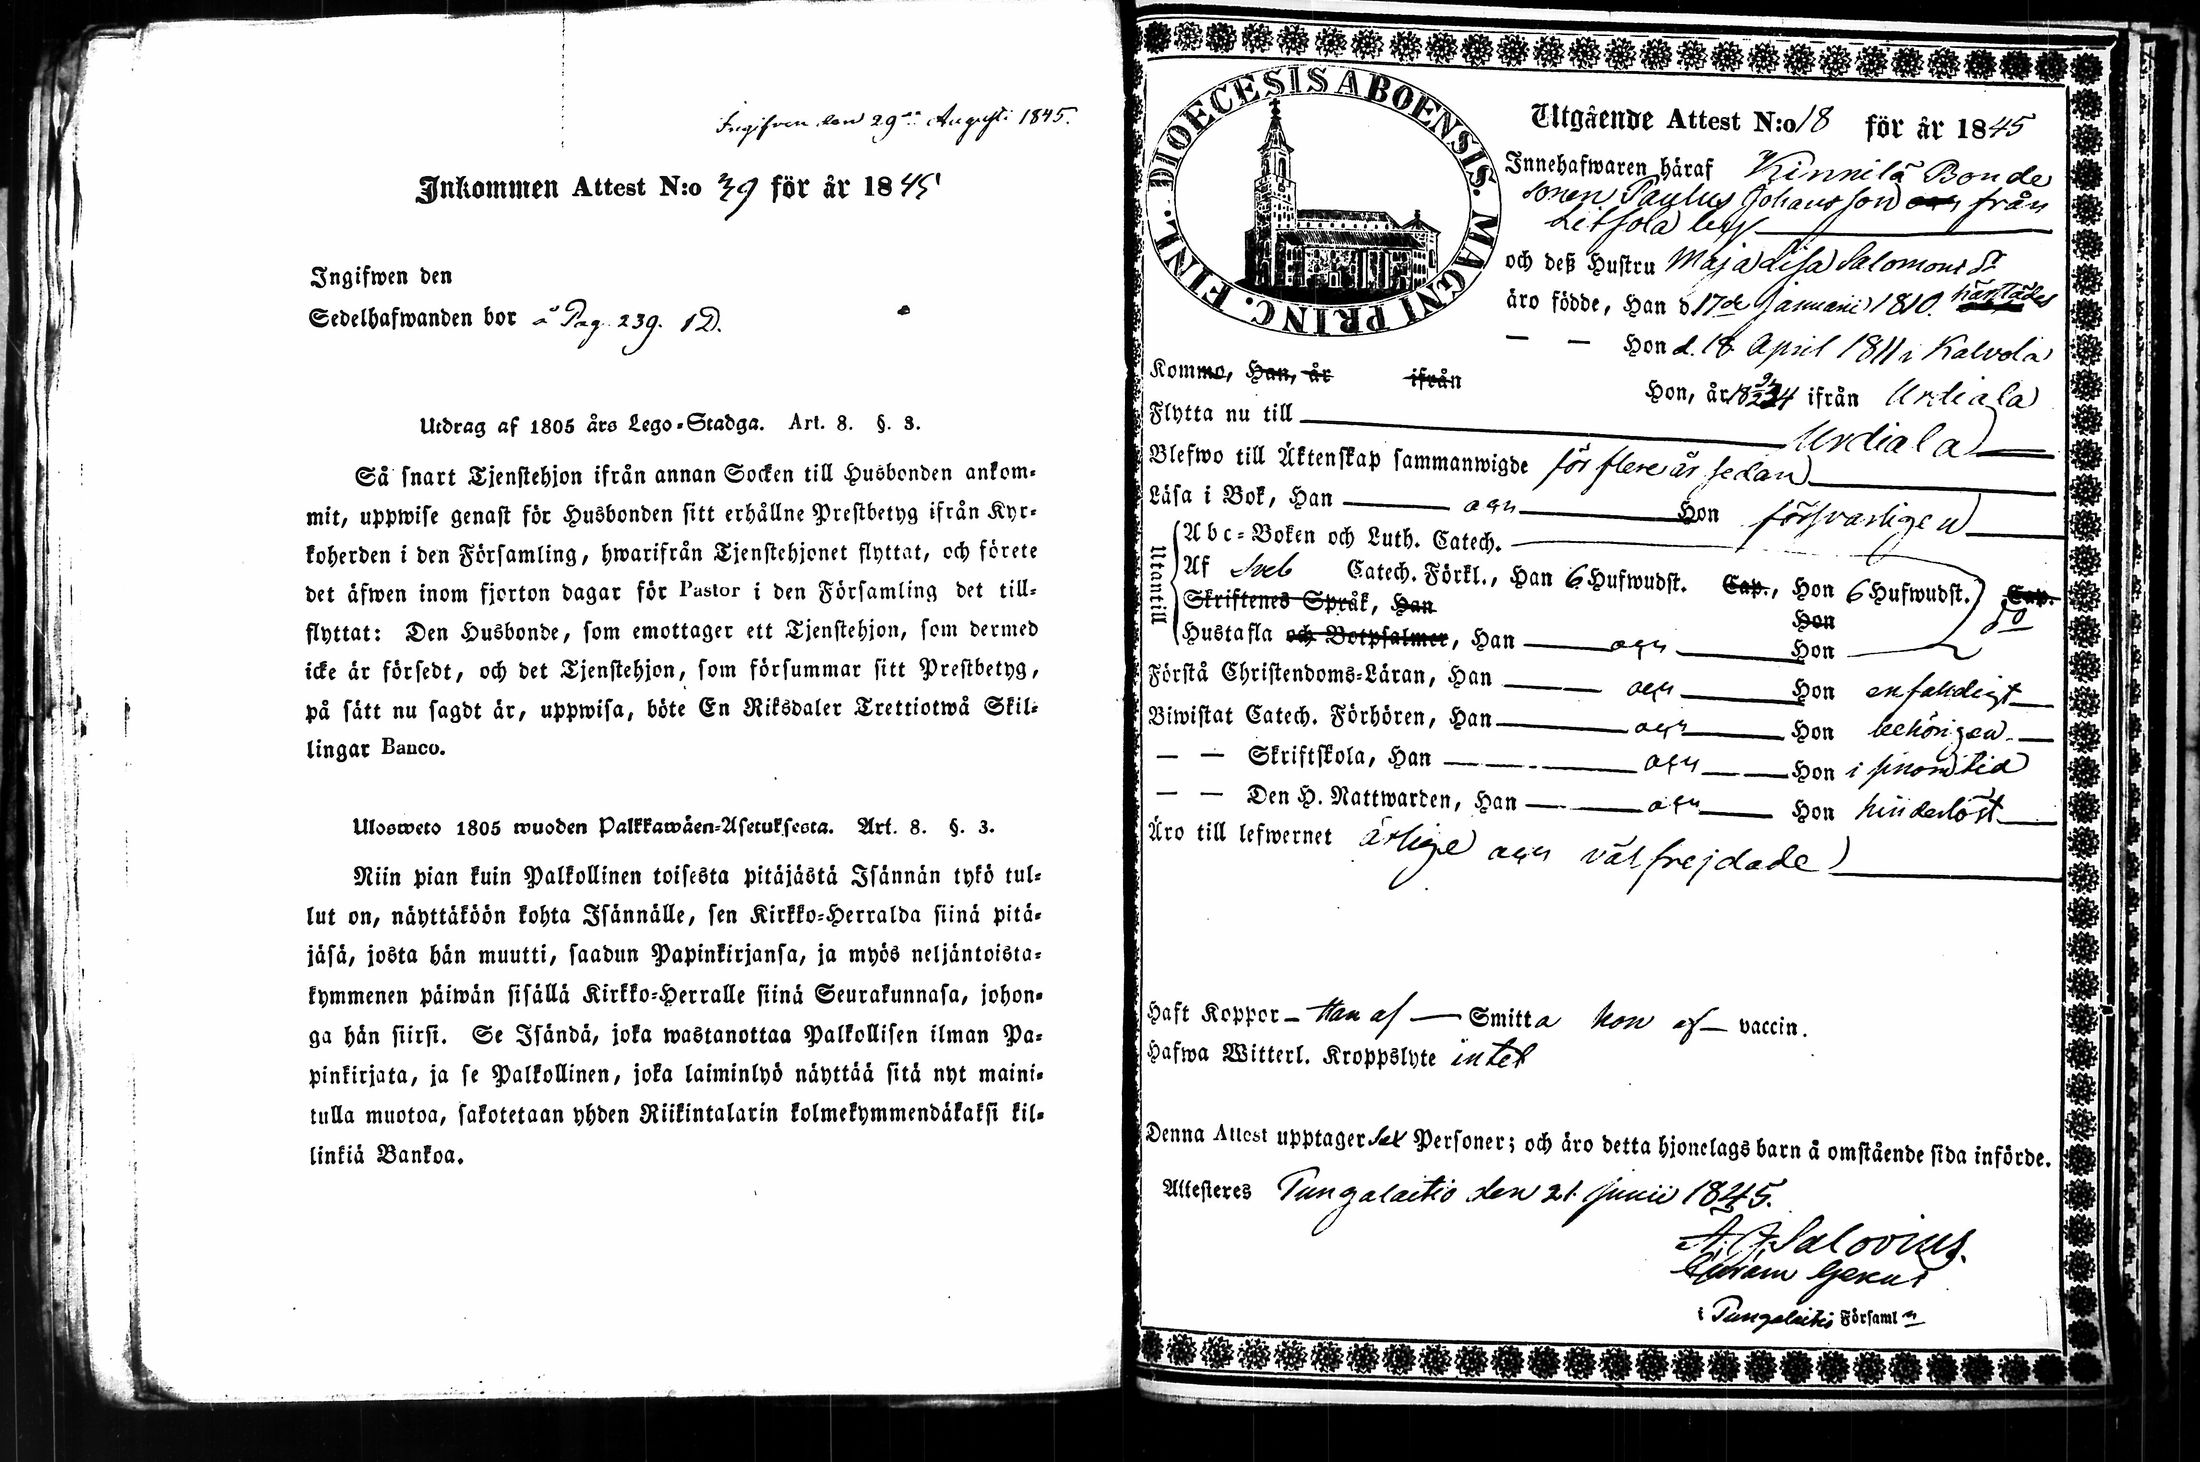 Ingifven den 29de Augusti 1845.
Inkommen Attest N:o 39 för år 1845
Ingifwen den
Sedelhafwanden bor å Pag. 239. 1D.
Utdrag af 1805 års Lego-Stadga. Art. 8. §. 3.
Så snart Tjenstehjon ifrån annan Socken till Husbonden ankom-
mit, uppwise genast för Husbonden sitt erhållne Prestbetyg ifrån Kyr-
koherden i den Församling, hwarifrån Tjenstehjonet flyttat, och förete
det äfwen inom fjorton dagar för Pastor i den Församling det till-
flyttat: Den Husbonde, som emottager ett Tjenstehjon, som dermed
icke är försedt, och det Tjenstehjon, som försummar sitt Prestbetyg,
på sätt nu sagdt är, uppwisa, böte En Riksdaler Trettiotwå Skil-
lingar Banco.
Ulosweto 1805 wuoden Palkkawäen-Asetuksesta. Art. 8. §. 3.
Niin pian kuin Palkollinen toisesta pitäjästä Isännän tykö tul-
lut on, näyttäköön kohta Isännälle, sen Kirkko-Herralda siinä pitä-
jäsä, josta hän muutti, saadun Papinkirjansa, ja myös neljäntoista-
kymmenen päiwän sisällä Kirkko-Herralle siinä Seurakunnasa, johon-
ga hän siirsi. Se Isändä, joka wastanottaa Palkollisen ilman Pa-
pinkirjata, ja se Palkollinen, joka laiminlyö näyttää sitä nyt maini-
tulla muotoa, sakotetaan yhden Riikintalarin kolmekymmendäkaksi kil-
linkiä Bankoa.
DIOECESIS ABOENSIS. MAGNI PRINC. FINL.
Utgående Attest N:o 18 för år 1845
Innehafwaren häraf Kinnilä Bonde
sonen Paulus Johansson från
by
och deß Hustru Maja Lisa Salomonsdr
äro födde, Han d 17de Januarii 1810. härstädes
— — Hon d. 18 April 1811 i Kalvola
Kommo, Han, år ifrån
Hon, år ifrån Urdiala
Flytta nu till Urdiala
Blefwo till Äktenskap sammanwigde för flere år sedan
Läsa i Bok, Han och Hon försvarligen
Utantill
Abc-Boken och Luth. Catech.
Af Sveb Catech. Förkl., Han 6 Hufwudst. Cap., Hon 6 Hufwudst. Cap.
Skriftenes Språk, Han Hon
Hustafla och Botpsalmer, Han och Hon
Förstå Christendoms-Läran, Han och Hon enfaldigt
Biwistat Catech. Förhören, Han och Hon behörigen
— — Skriftskola, Han och Hon i sinom tid
— — Den H. Nattwarden, Han och Hon hinderlöst
Äro till lefwernet ärlige och välfrejdade
Haft Koppor — Han af — Smitta hon af — vaccin.
Hafwa Witterl. Kroppslyte intet
Denna Attest upptager sex Personer; och äro detta hjonelags barn å omstående sida införde.
Attesteres Tungelaitio den 21 Junii 1845.
A. J. Salovius.
i Församl